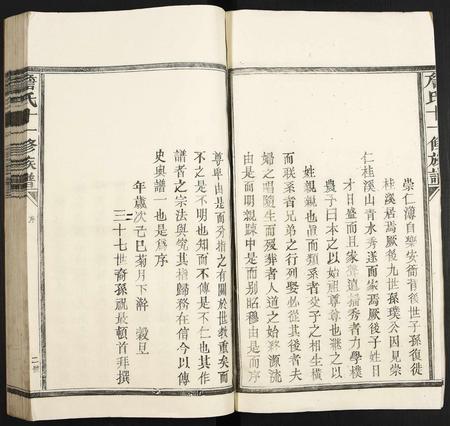 詹氏十一修族譜
崇仁薄自樂安衙背後世子孫復徙
桂溪居焉厥後九世孫璞公因見崇
仁桂溪山青水秀遂而家焉厥後子姓日
才日盛而且家聲遠播秀者力學樸
農子曰本之以始祖尊尊也繼之以
姓親親也眞而類系者父子之相生橫
而联系者兄弟之行列娶必從其後者夫
婦之唱隨生而殁葬者人道之始終源流
由是而明親踈中是而别昭穆由是而序
尊卑由是而分推之有關於世教重矣而
不之是不明也知而不傳是不仁也其作
譜者之宗法與究其指歸務在信今以傳
史與譜一也是為序
年歲次己巳菊月下澣 穀旦
三十七世裔孫 欣頓首拜撰
詹氏十一修族譜
序
二